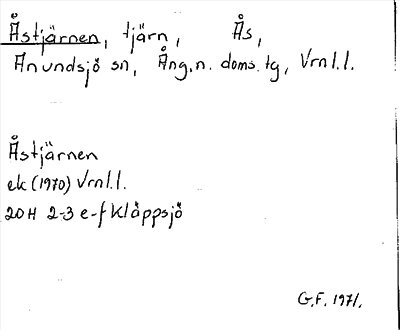 Åstjärnen, tjärn, Ås,
Anundsjö sn, Ång.n. doms.tg, Vrnl.l.
Åstjärnen
ek (1970) Vrnl.l.
20H 2-3 e-f Kläppsjö
G.F. 1971.